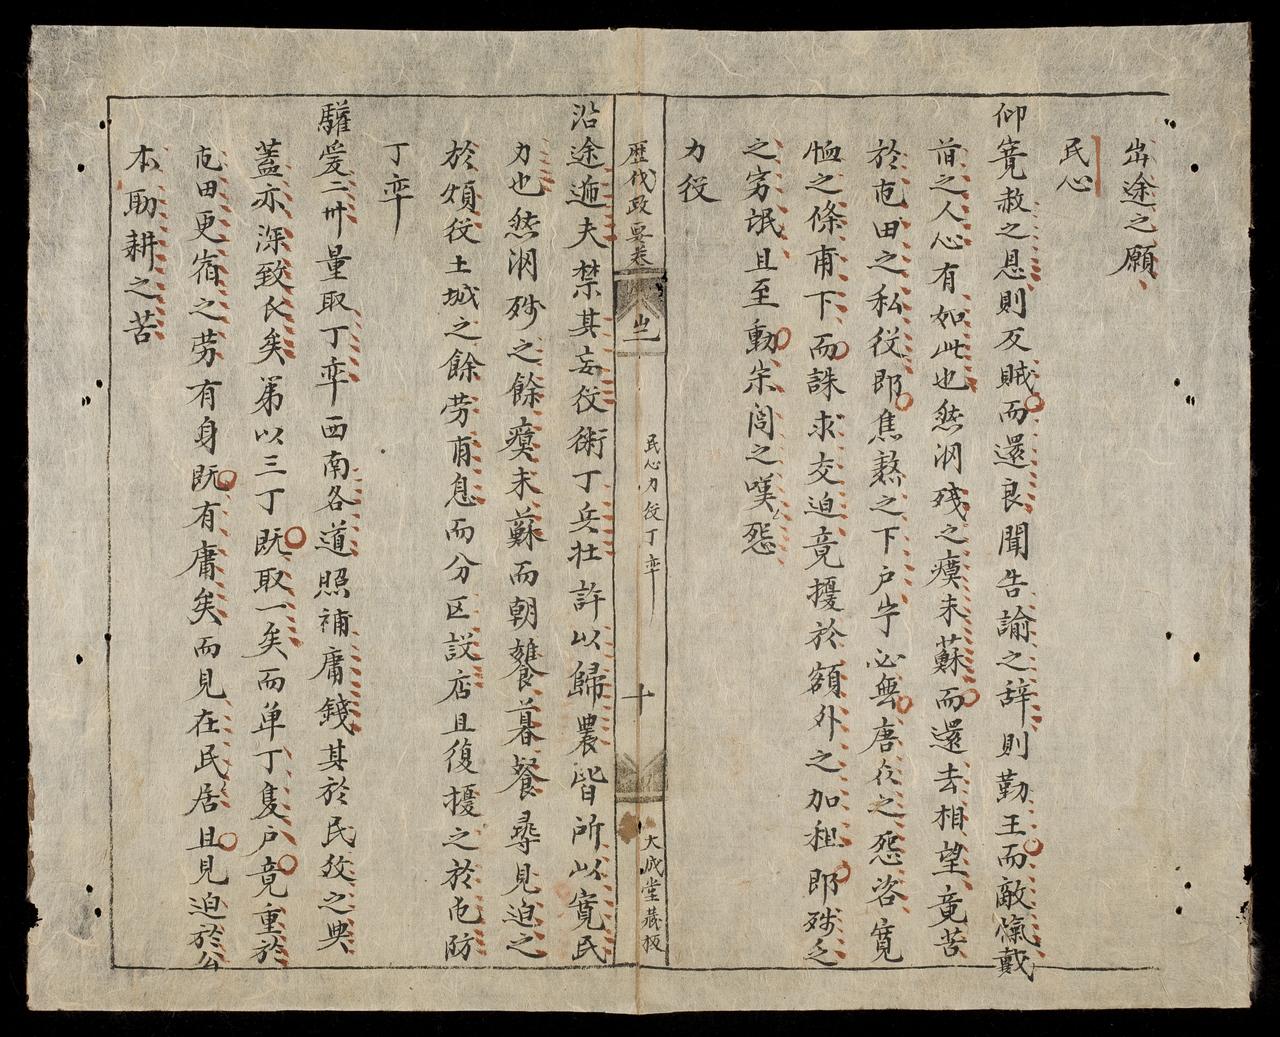 出途之願
民心
仰寬赦之恩則反賊而還良聞告諭之辞則勤王而敵愾戴
首之人心有如此也然㓑残之瘼未蘇而還去相望竟苦
於屯田之私役即焦熬之下户宁必無唐衣之怨咨寬
恤之條甫下而誅求交迫竟擾於額外之加租即㱚乏
之穷氓且至動宋閭之嘆怨
力役
歴代政要卷 之 民心力役丁率 十 大成堂藏板
沿途遞夫禁其妄役術丁兵壮許以歸農皆所以寬民
力也然㓑㱚之餘瘼未蘇而朝饔暮飱尋見迫之
於煩役土城之餘劳甫息而分区設店且復擾之於屯防
丁率
驩爱二州量取丁率西南各道照補庸錢其於民役之典
蓋亦深致民矣第以三丁既取一矣而单丁隻户竟重於
屯田更宿之劳有身既有庸矣而見在民居且見迫於公
本助耕之苦